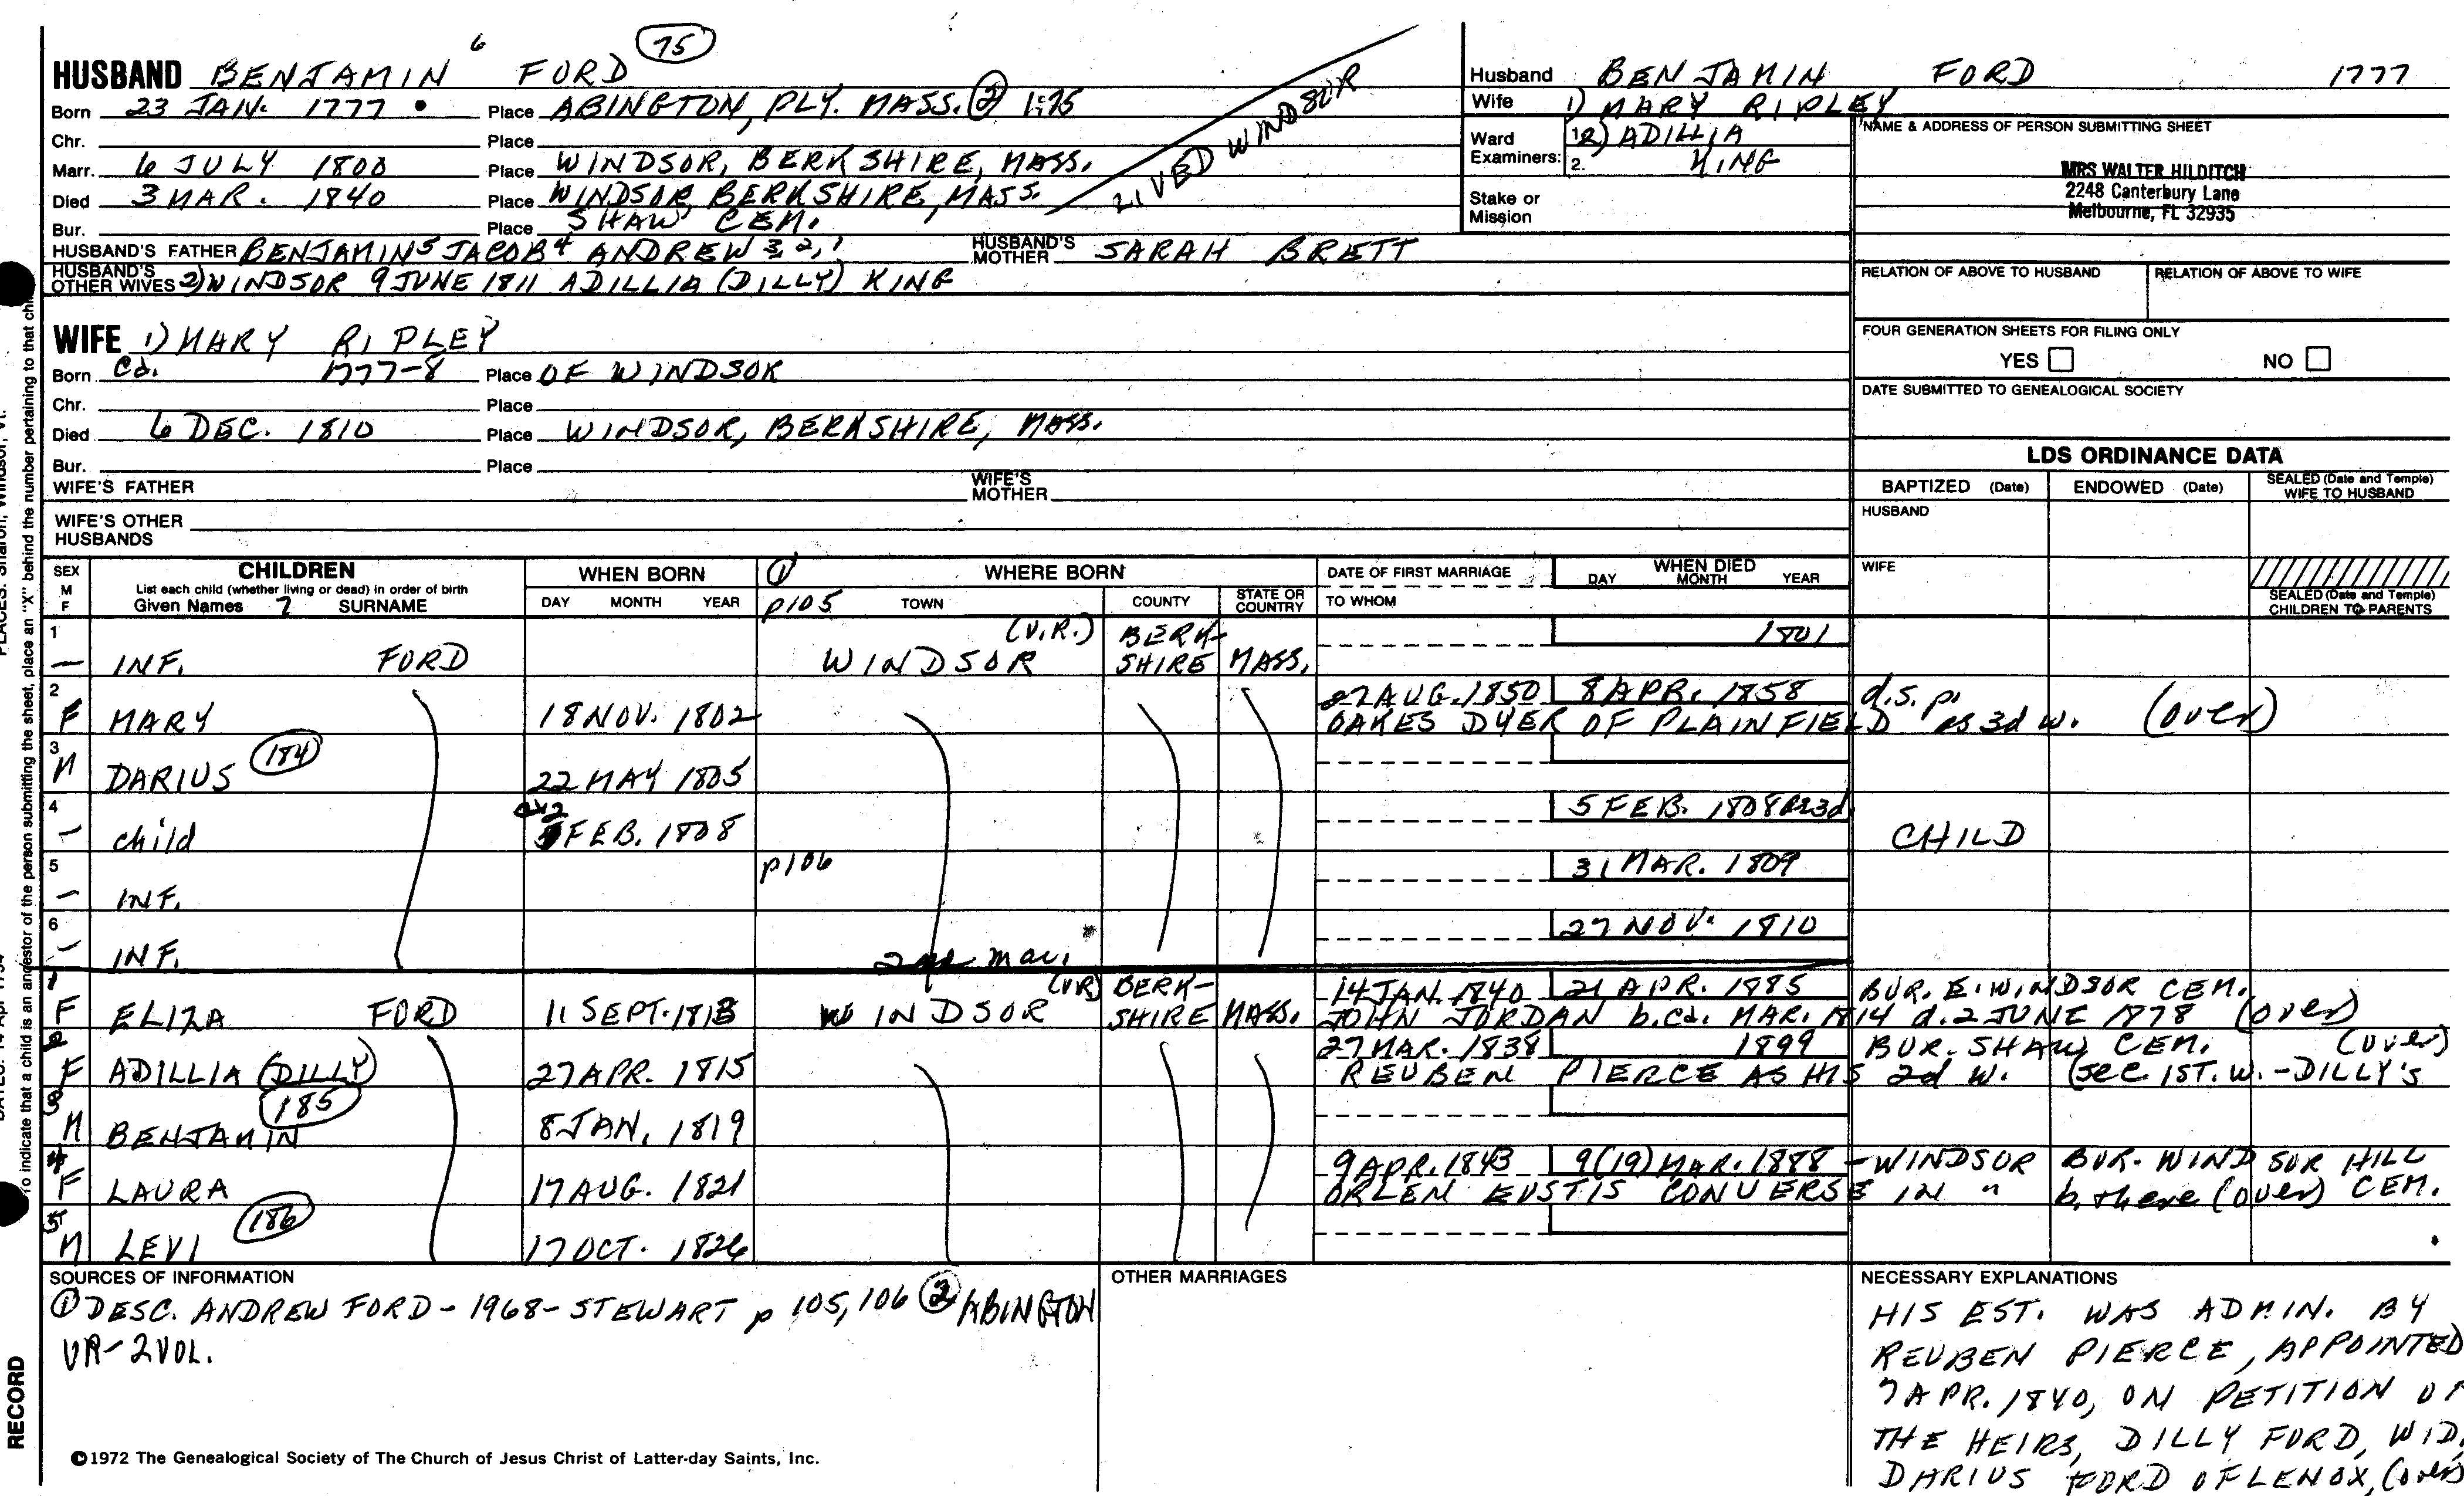 HUSBAND BENJAMIN 6 FORD 75
Born 23 JAN. 1777 • Place ABINGTON, PLY. MASS. 2 1:75
Chr. Place
Marr. 6 JULY 1800 Place WINDSOR, BERKSHIRE, MASS.
Died 3 MAR. 1840 Place WINDSOR, BERKSHIRE, MASS.
LIVED WINDSOR
Bur. Place SHAW CEM.
HUSBAND'S FATHER BENJAMIN5 JACOB4 ANDREW 3, 2, 1 HUSBAND'S MOTHER SARAH BRETT
HUSBAND'S OTHER WIVES 2) WINDSOR 9 JUNE 1811 ADILLIA (DILLY) KING
WIFE 1) MARY RIPLEY
Born Ca. 1777-8 Place OF WINDSOR
Chr. Place
Died 6 DEC. 1810 Place WINDSOR, BERKSHIRE, MASS.
Bur. Place
WIFE'S FATHER WIFE'S MOTHER
WIFE'S OTHER HUSBANDS
Husband BENJAMIN FORD 1777
Wife 1) MARY RIPLEY
Ward Examiners: 1. 2) ADILLIA
2. KING
Stake or Mission
NAME & ADDRESS OF PERSON SUBMITTING SHEET
MRS WALTER HILDITCH
2248 Canterbury Lane
Melbourne, FL 32935
RELATION OF ABOVE TO HUSBAND RELATION OF ABOVE TO WIFE
FOUR GENERATION SHEETS FOR FILING ONLY
YES NO
DATE SUBMITTED TO GENEALOGICAL SOCIETY
LDS ORDINANCE DATA
BAPTIZED (Date) ENDOWED (Date) SEALED (Date and Temple) WIFE TO HUSBAND
HUSBAND
WIFE
SEALED (Date and Temple) CHILDREN TO PARENTS
SEX M F CHILDREN WHEN BORN 1 WHERE BORN DATE OF FIRST MARRIAGE WHEN DIED
List each child (whether living or dead) in order of birth
Given Names SURNAME DAY MONTH YEAR p105 TOWN COUNTY STATE OR COUNTRY TO WHOM DAY MONTH YEAR
1 (V.R.) BERK- 1801
— INF. FORD WINDSOR SHIRE MASS.
2 27 AUG. 1850 8 APR. 1858 d.s.p.
F MARY 18 NOV. 1802 OAKES DYER OF PLAINFIELD as 3d w. (over)
3
M DARIUS 184 22 MAY 1805
4 5 FEB. 1808
— child FEB. 1808 CHILD
5 p106 31 MAR. 1809
— INF.
6 27 NOV. 1810
— INF. 2nd mar.
1 (VR) BERK- 14 JAN. 1840 21 APR. 1885 BUR. E. WINDSOR CEM.
F ELIZA FORD 11 SEPT. 1813 WINDSOR SHIRE MASS. JOHN JORDAN b. ca. MAR. 1814 d. 2 JUNE 1878 (over)
2 27 MAR. 1838 1899 BUR. SHAW CEM. (over)
F ADILLIA (DILLY) 27 APR. 1815 REUBEN PIERCE AS HIS 2d W. (see 1ST. W. - DILLY'S
3
M BENJAMIN 185 8 JAN. 1819
4 9 APR. 1843 9(19) MAR. 1888 - WINDSOR BUR. WINDSOR HILL
F LAURA 17 AUG. 1821 ORLEN EUSTIS CONVERSE IN " b. there (over) CEM.
5
M LEVI 186 17 OCT. 1826
SOURCES OF INFORMATION
1 DESC. ANDREW FORD - 1968 - STEWART p 105, 106 2 ABINGTON
VR - 2 VOL.
OTHER MARRIAGES
NECESSARY EXPLANATIONS
HIS EST. WAS ADMIN. BY
REUBEN PIERCE, APPOINTED
7 APR. 1840, ON PETITION OF
THE HEIRS, DILLY FORD, WID,
DARIUS FORD OF LENOX, (over)
©1972 The Genealogical Society of The Church of Jesus Christ of Latter-day Saints, Inc.
To indicate that a child is an ancestor of the person submitting the sheet, place an "X" behind the number pertaining to that
RECORD